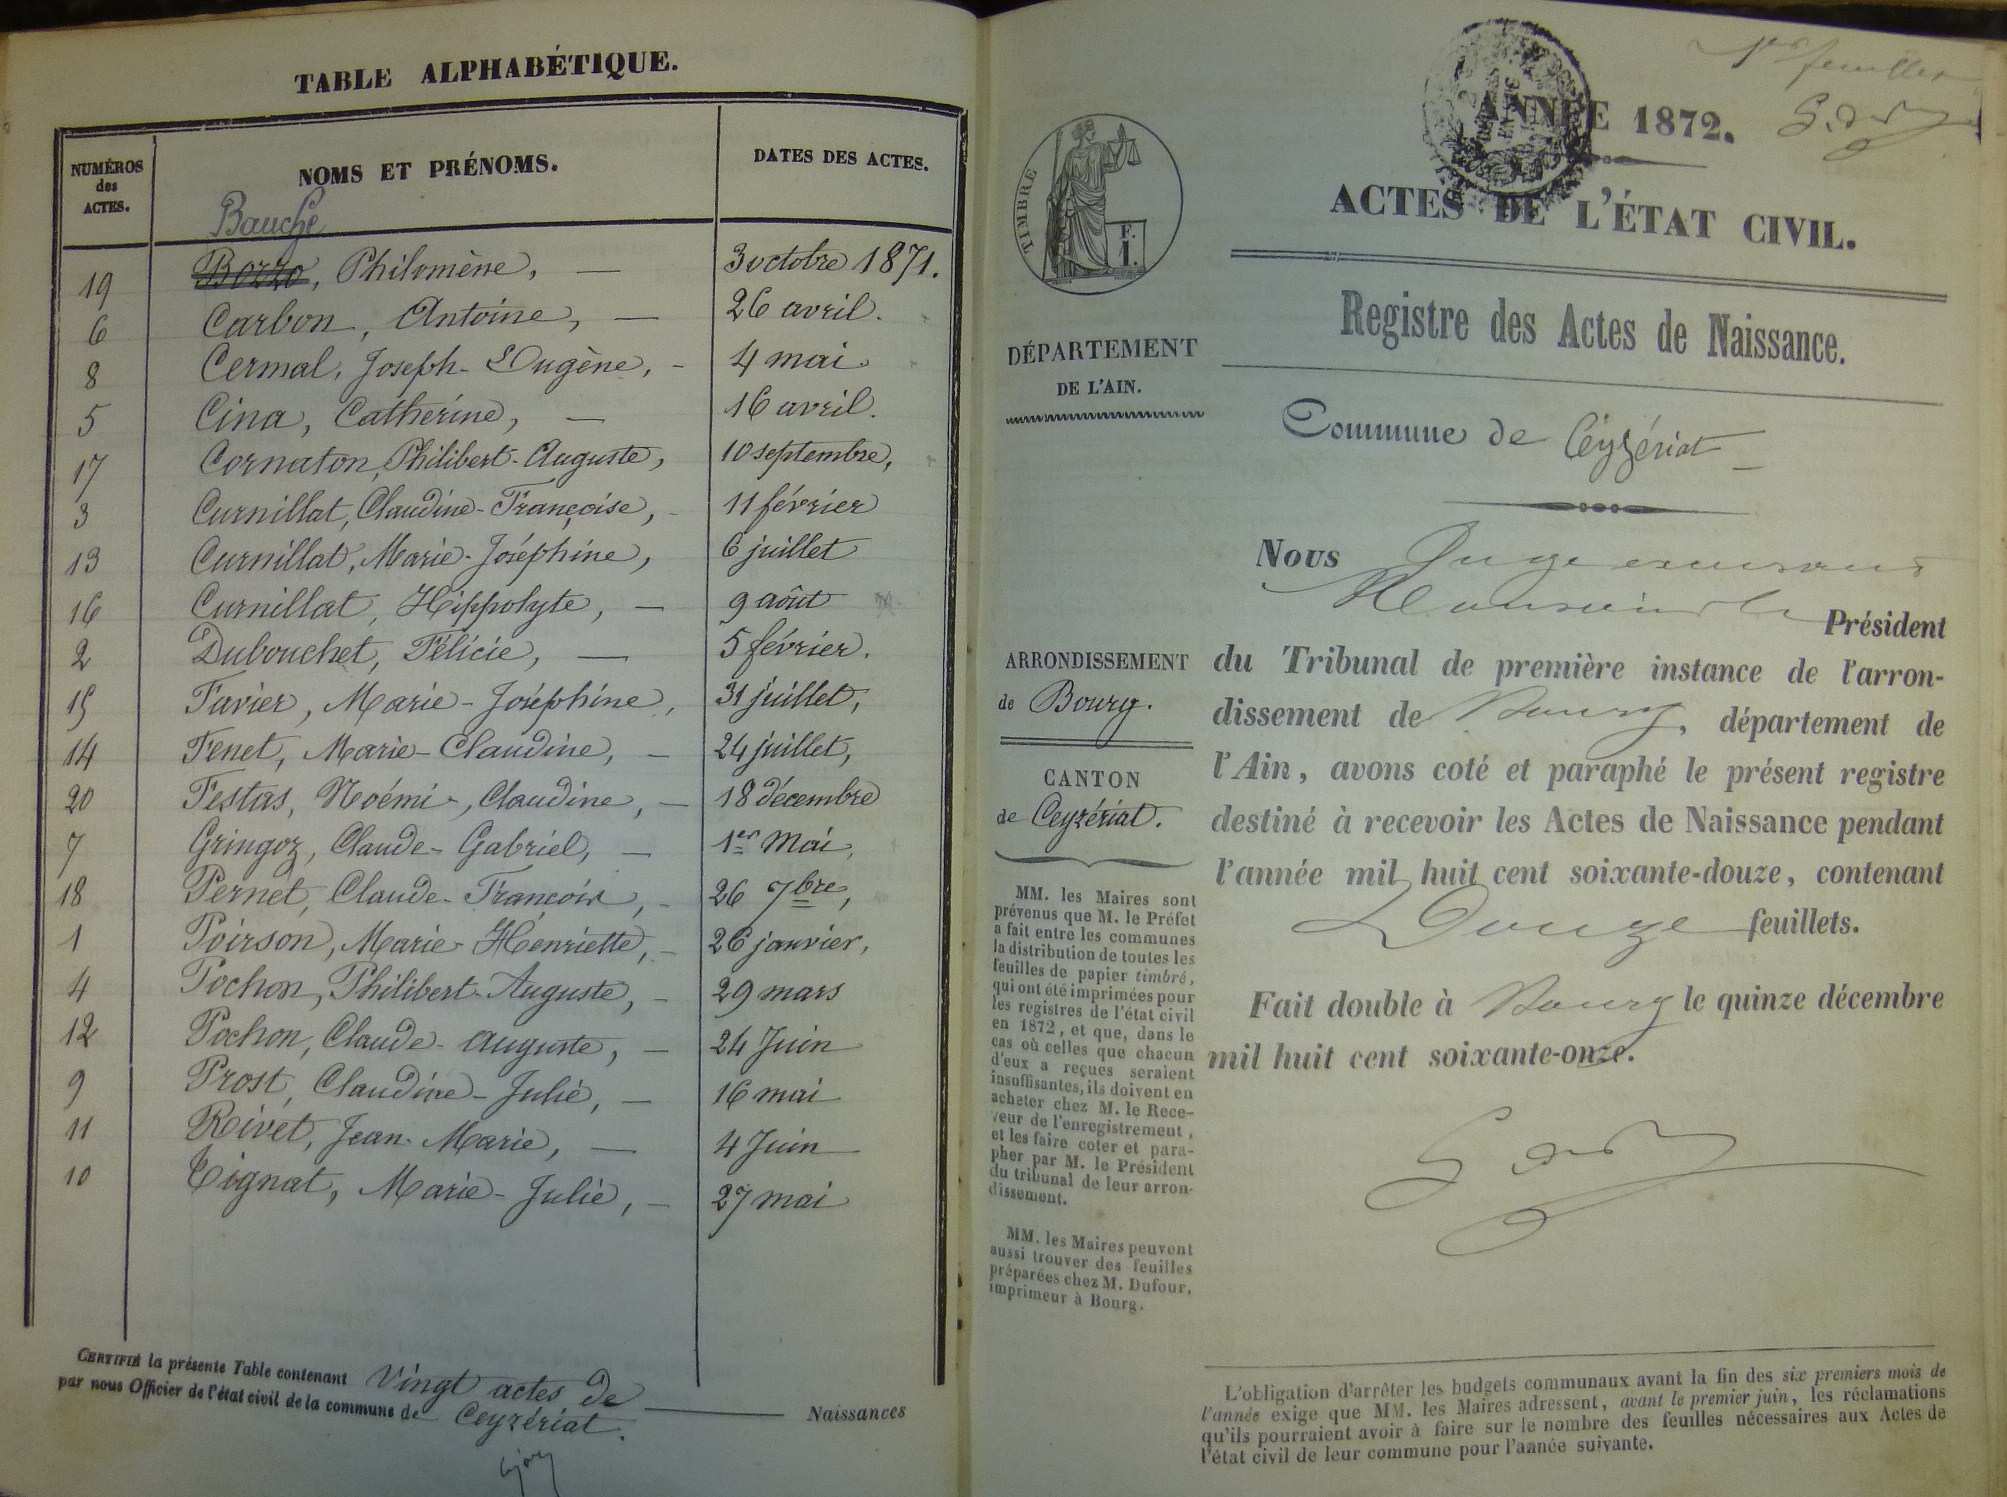 TABLE ALPHABÉTIQUE.
NUMÉROS
des
ACTES.
NOMS ET PRÉNOMS.
DATES DES ACTES.
Bauche
19 Bozzo, Philomène, — 3 octobre 1871.
6 Carbon, Antoine, — 26 avril.
8 Cermal, Joseph-Eugène, - 4 mai.
5 Cina, Catherine, — 16 avril.
17 Cornaton, Philibert-Auguste, 10 septembre,
3 Curnillat, Claudine-Françoise, - 11 février
13 Curnillat, Marie-Joséphine, 6 juillet
16 Curnillat, Hippolyte, — 9 août
2 Dubouchet, Félicie, — 5 février.
15 Favier, Marie-Joséphine, 31 juillet,
14 Fenet, Marie-Claudine, — 24 juillet,
20 Festas, Noémi-, Claudine, — 18 décembre
7 Gringoz, Claude-Gabriel, — 1er Mai,
18 Pernet, Claude-François, - 26 7bre,
1 Poirson, Marie-Henriette, - 26 janvier,
4 Pochon, Philibert-Auguste, - 29 mars
12 Pochon, Claude-Auguste, — 24 Juin
9 Prost, Claudine-Julie, — 16 mai
11 Rivet, Jean-Marie, — 4 Juin
10 Tignat, Marie-Julie, — 27 mai
CERTIFIÉ la présente Table contenant Vingt actes de Naissances
par nous Officier de l'état civil de la commune de Ceyzériat.
1er feuillet
ANNÉE 1872.
TIMBRE
F.
1.
ACTES DE L'ÉTAT CIVIL.
Registre des Actes de Naissance.
DÉPARTEMENT
DE L'AIN.
Commune de Ceyzériat
Nous Juge
Monsieur le Président
ARRONDISSEMENT
de Bourg.
CANTON
de Ceyzériat.
du Tribunal de première instance de l'arron-
dissement de Bourg, département de
l'Ain, avons coté et paraphé le présent registre
destiné à recevoir les Actes de Naissance pendant
l'année mil huit cent soixante-douze, contenant
Douze feuillets.
Fait double à Bourg le quinze décembre
mil huit cent soixante-onze.
MM. les Maires sont
prévenus que M. le Préfet
a fait entre les communes
la distribution de toutes les
feuilles de papier timbré,
qui ont été imprimées pour
les registres de l'état civil
en 1872, et que, dans le
cas où celles que chacun
d'eux a reçues seraient
insuffisantes, ils doivent en
acheter chez M. le Rece-
veur de l'enregistrement,
et les faire coter et para-
pher par M. le Président
du tribunal de leur arron-
dissement.
MM. les Maires peuvent
aussi trouver des feuilles
préparées chez M. Dufour,
imprimeur à Bourg.
L'obligation d'arrêter les budgets communaux avant la fin des six premiers mois de
l'année exige que MM. les Maires adressent, avant le premier juin, les réclamations
qu'ils pourraient avoir à faire sur le nombre des feuilles nécessaires aux Actes de
l'état civil de leur commune pour l'année suivante.